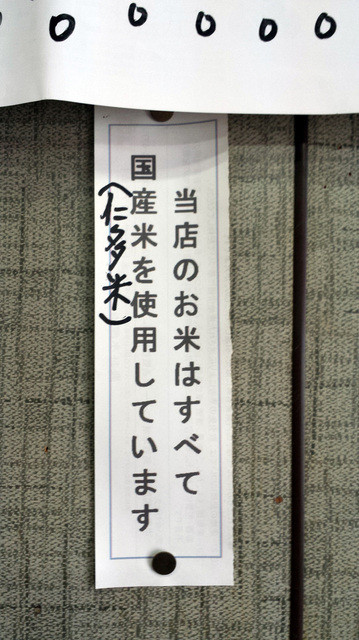 0 0 0 0 0
当店のお米はすべて
国産米を使用しています
(仁多米)